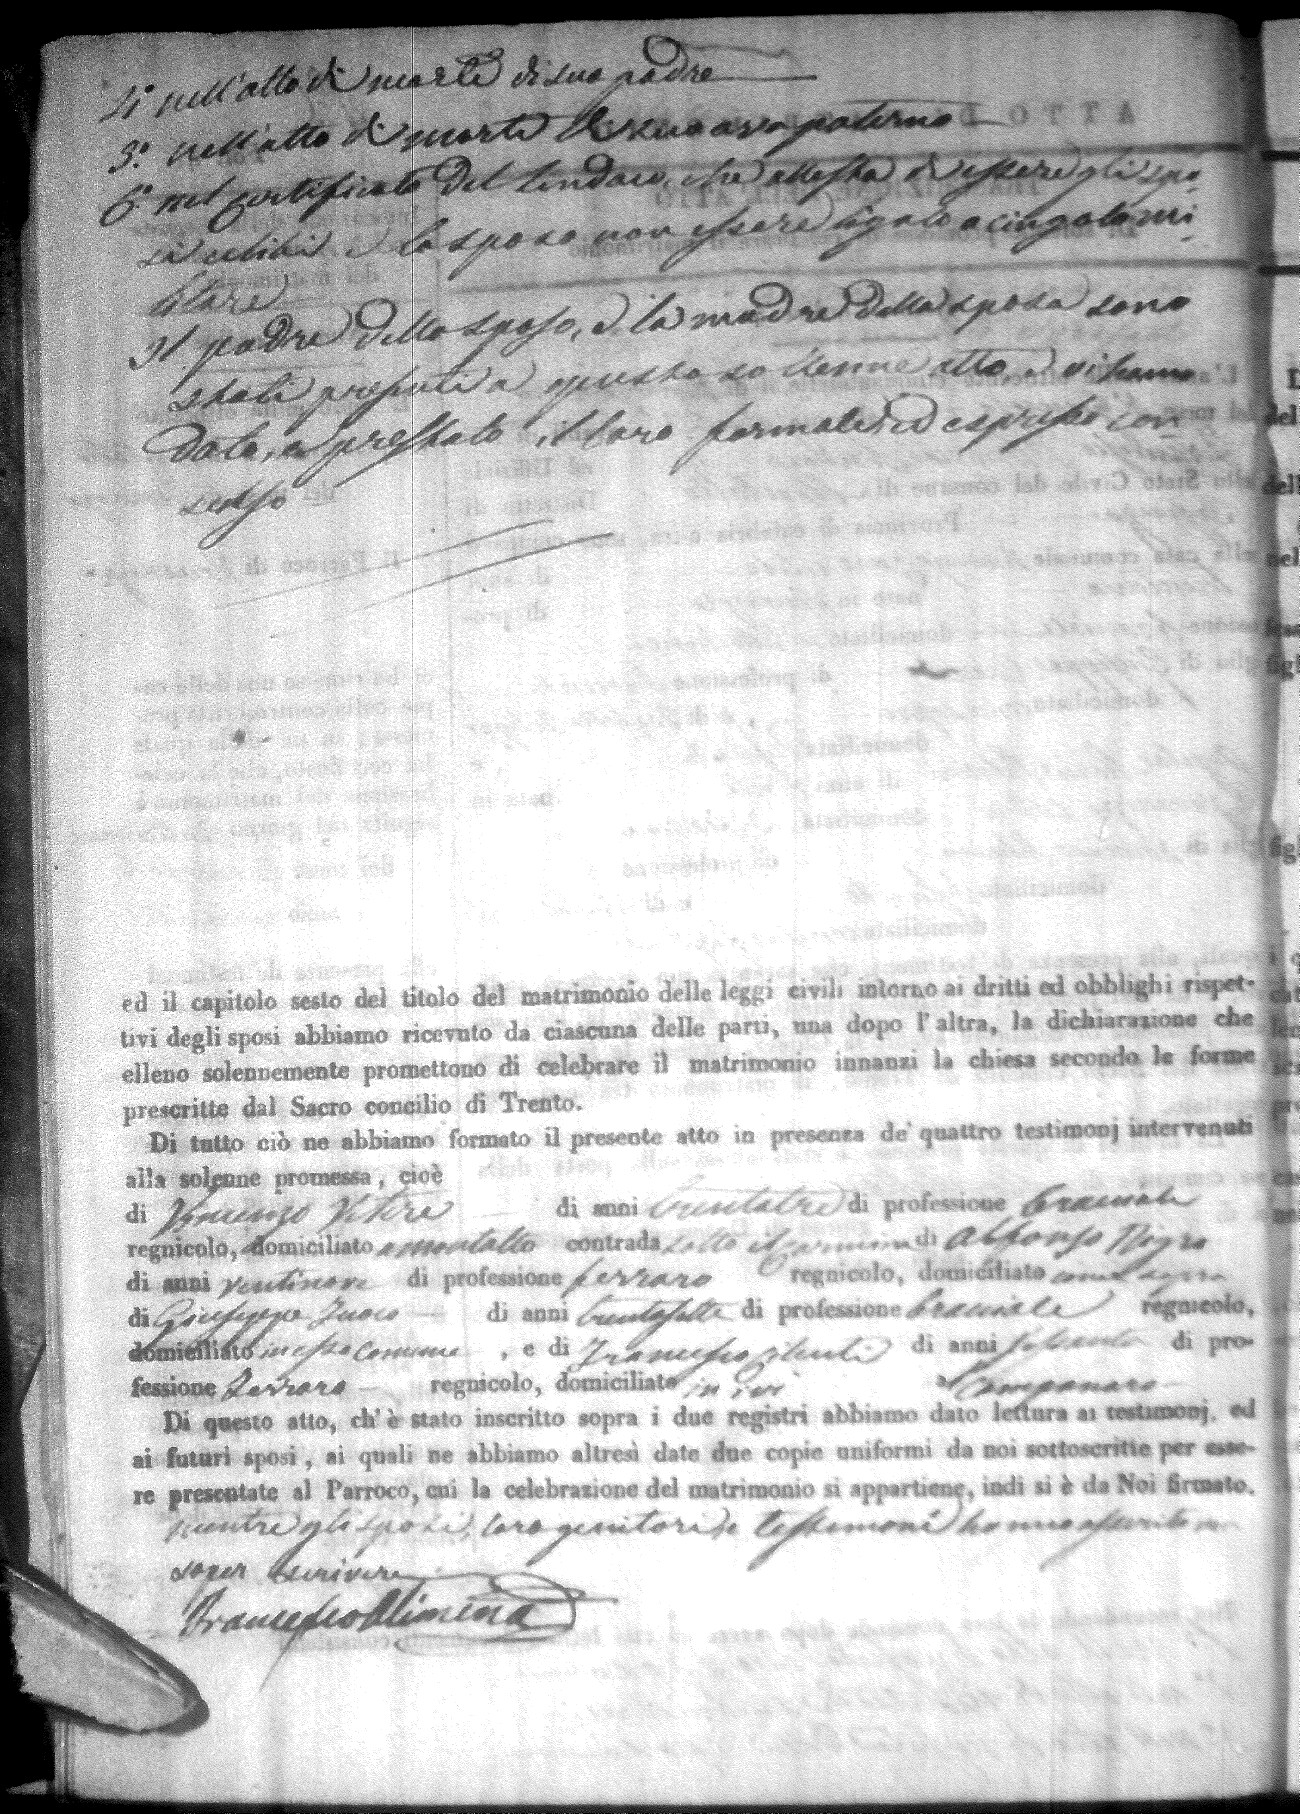 4° nell'atto di morte di suo padre
5° nell'atto di morte di suo avo paterno
6° nel certificato del Sindaco, che attesta di essere gli spo-
si celibi e lo sposo non essere ligato a cingolo mi-
litare
Il padre dello sposo, e la madre della sposa sono
stati presenti a questo solenne atto e vi hanno
dato, e prestato il loro formale ed espresso con-
senso
ed il capitolo sesto del titolo del matrimonio delle leggi civili intorno ai dritti ed obblighi rispet-
tivi degli sposi abbiamo ricevuto da ciascuna delle parti, una dopo l'altra, la dichiarazione che
elleno solennemente promettono di celebrare il matrimonio innanzi la chiesa secondo le forme
prescritte dal Sacro concilio di Trento.
Di tutto ciò ne abbiamo formato il presente atto in presenza de' quattro testimonj intervenuti
alla solenne promessa, cioè
di Vincenzo Vitere di anni trentatre di professione bracciale
regnicolo, domiciliato a montalto contrada sotto il carmine di Alfonso Nigro
di anni ventinove di professione ferraro regnicolo, domiciliato come sopra
di Giuseppe di anni trentasette di professione bracciale regnicolo,
domiciliato in esso Comune, e di Francesco di anni di pro-
fessione Ferraro regnicolo, domiciliato in ivi a Campanaro
Di questo atto, ch'è stato inscritto sopra i due registri abbiamo dato lettura ai testimonj, ed
ai futuri sposi, ai quali ne abbiamo altresì date due copie uniformi da noi sottoscritte per esse-
re presentate al Parroco, cui la celebrazione del matrimonio si appartiene, indi si è da Noi firmato,
mentre gli sposi, loro genitori e testimoni hanno asserito non
saper scrivere
Francesco Alimena